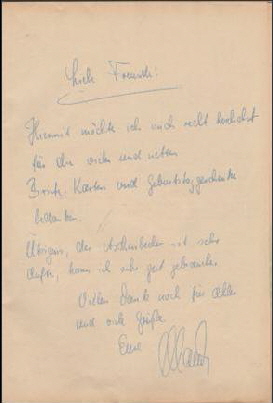 Liebe Freunde!
Hiermit möchte ich mich recht herzlichst
für die vielen und netten
Briefe, Karten und Geburtstagsgeschenke
bedanken.
Übrigens, der Aschenbecher ist sehr
kann ich sehr gut gebrauchen
Vielen Dank noch für alles
und viele Grüße
Eure